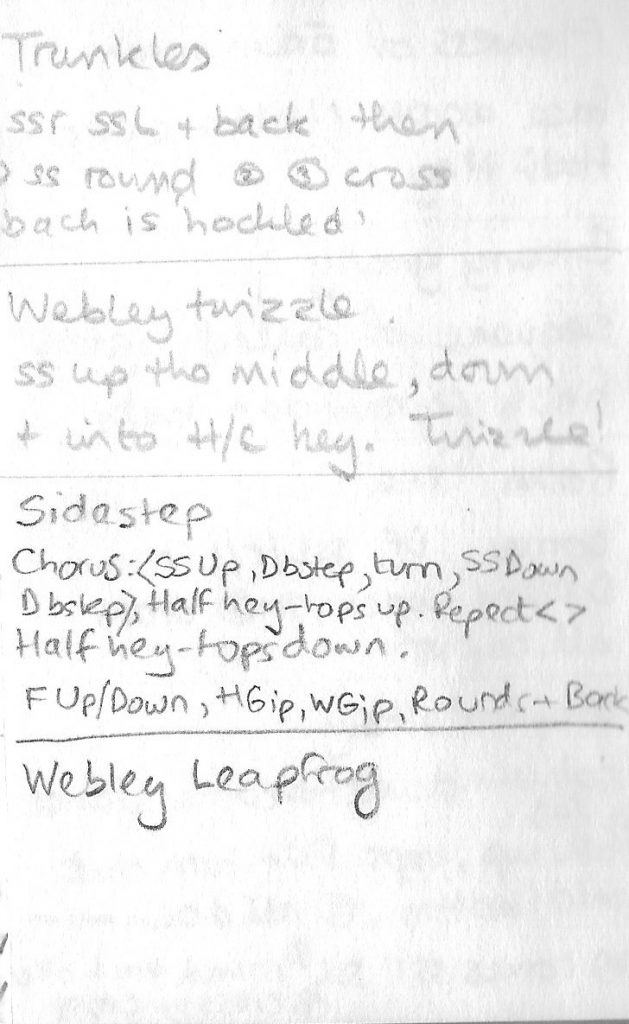 Trunkles
ssr ssL + back then
ss round ② ③ cross
back is hockled'
Webley twizzle
ss up the middle, down
+ into H/C hey. Twizzle!
Sidestep
Chorus:<SSUp, Dbstep, turn, SSDown
Dbstep>, Half hey-tops up. Repeat< >
Half hey-tops down.
F Up/Down, HGip, WGip, Rounds + Back
Webley Leapfrog